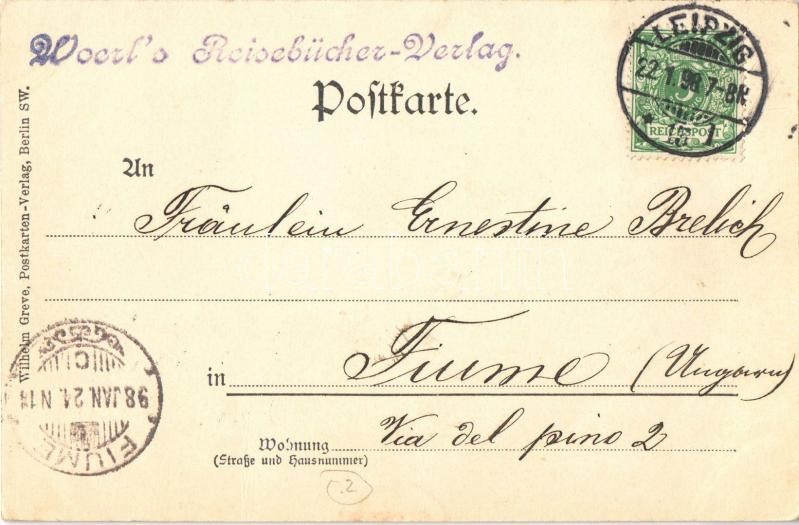 Woerl's Reisebücher-Verlag.
LEIPZIG
22.1.98.7-8N.
1
5
REICHSPOST
Postkarte.
An
Fräulein Ernestine Brelich
in Fiume (Ungarn)
Wohnung Via del pino 2
(Straße und Hausnummer)
2
Wilhelm Greve, Postkarten-Verlag, Berlin SW.
FIUME
98 JAN 24. N